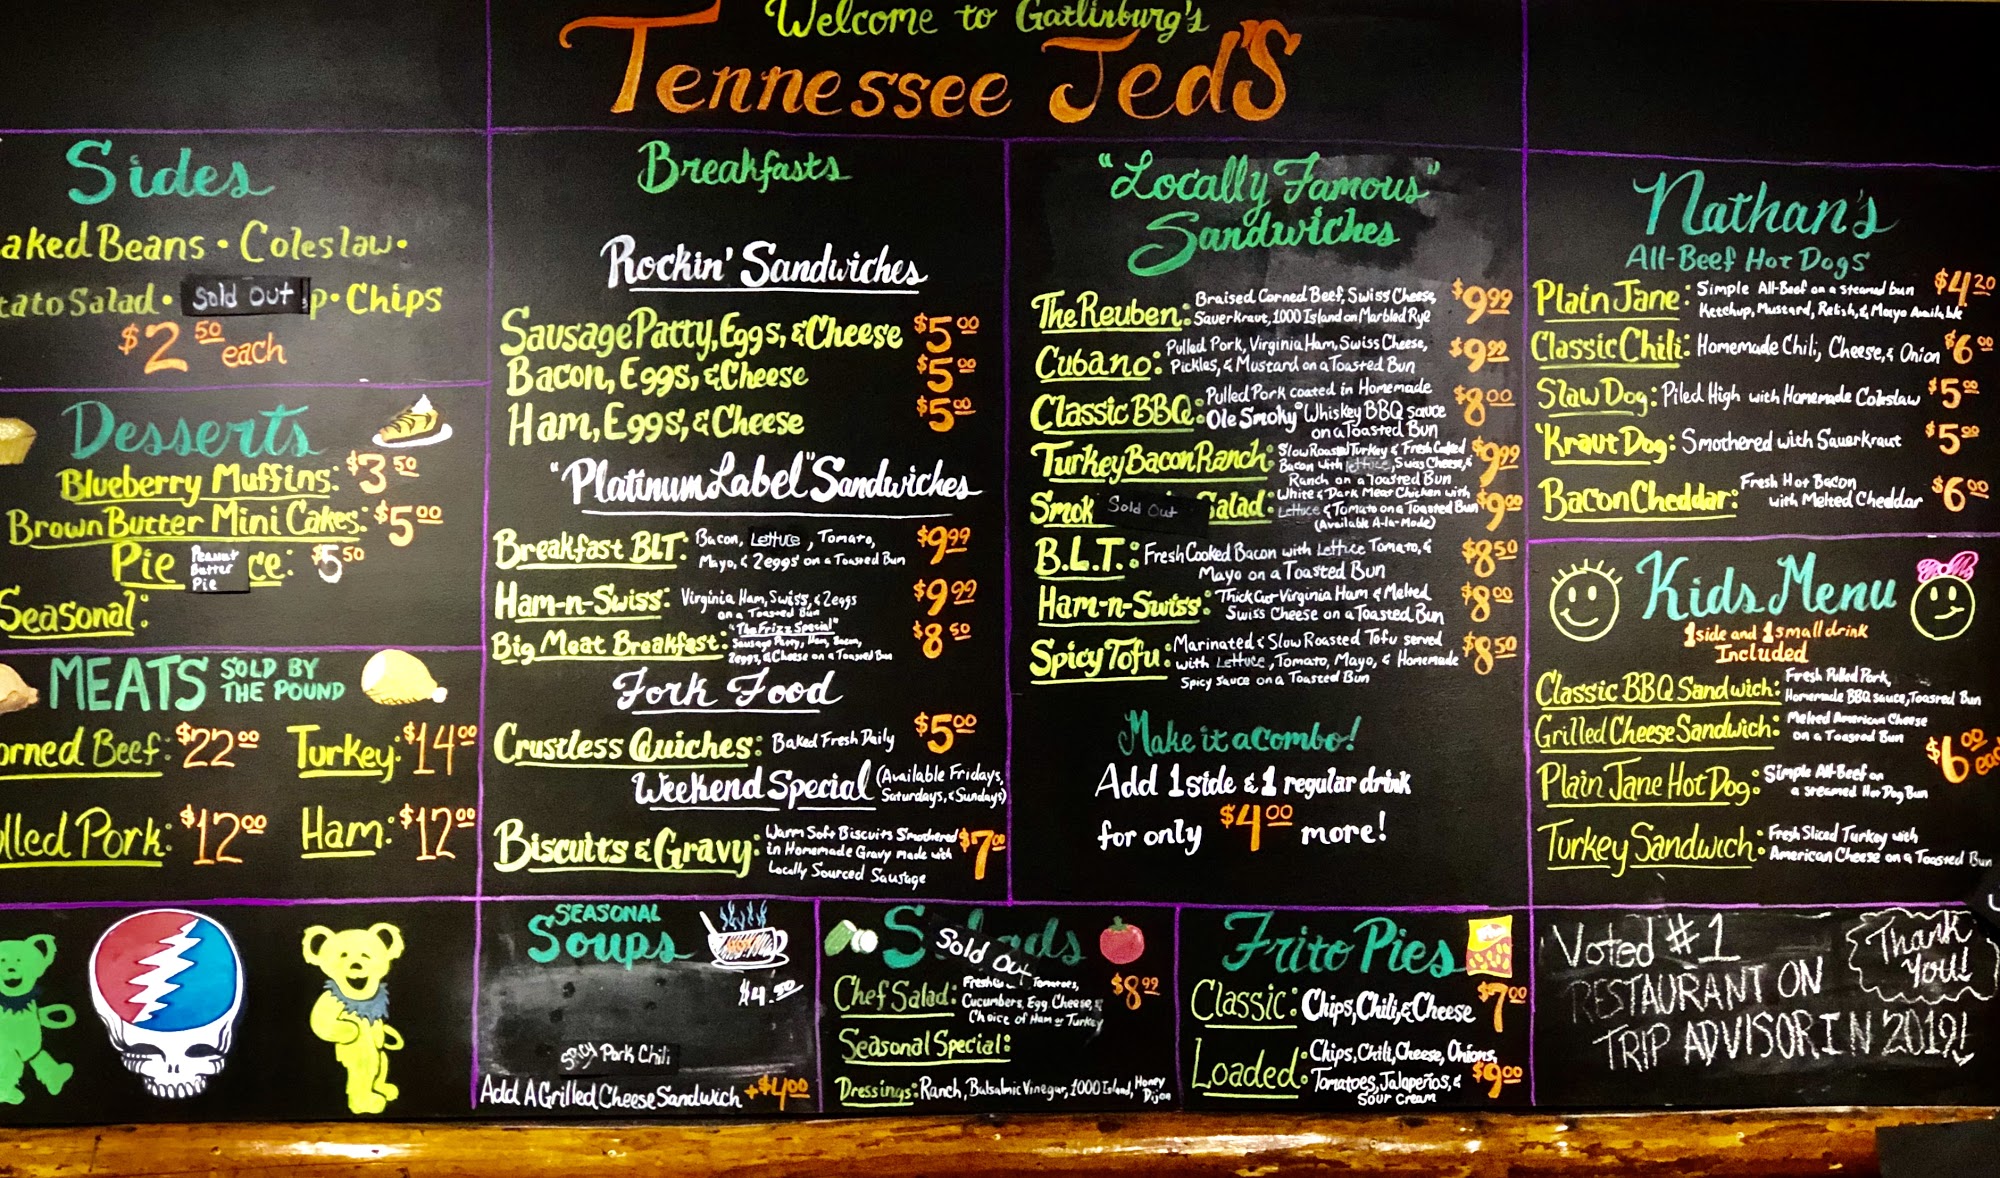 Welcome to Gatlinburg's
Tennessee Jed'S
Sides
aked Beans • Coleslaw •
tato Salad • Sold Out p • Chips
$2.50 each
Desserts
Blueberry Muffins: $3.50
Brown Butter Mini Cakes: $5.00
Pie Peanut Butter Pie ce: $5.50
Seasonal:
MEATS SOLD BY
THE POUND
orned Beef: $22.00 Turkey: $14.00
lled Pork: $12.00 Ham: $12.00
Breakfasts
Rockin' Sandwiches
Sausage Patty, Eggs, & Cheese $5.00
Bacon, Eggs, & Cheese $5.00
Ham, Eggs, & Cheese $5.00
"Platinum Label" Sandwiches
Breakfast BLT: Bacon, Lettuce, Tomato, $9.99
Mayo, & 2 eggs on a Toasted Bun
Ham-n-Swiss: Virginia Ham, Swiss, & 2 eggs $9.99
on a Toasted Bun
"The Frizz Special"
Big Meat Breakfast: Sausage Patty, Ham, Bacon, $8.50
2 eggs, & Cheese on a Toasted Bun
Fork Food
Crustless Quiches: Baked Fresh Daily $5.00
Weekend Special (Available Fridays,
Saturdays, & Sundays)
Biscuits & Gravy: Warm Soft Biscuits Smothered $7.00
in Homemade Gravy made with
Locally Sourced Sausage
"Locally Famous"
Sandwiches
The Reuben: Braised Corned Beef, Swiss Cheese, $9.99
Sauerkraut, 1000 Island on Marbled Rye
Cubano: Pulled Pork, Virginia Ham, Swiss Cheese, $9.99
Pickles, & Mustard on a Toasted Bun
Classic BBQ: Pulled Pork coated in Homemade $8.00
"Ole Smoky" Whiskey BBQ sauce
on a Toasted Bun
Turkey Bacon Ranch: Slow Roasted Turkey & Fresh Cooked $9.99
Bacon with Lettuce, Swiss Cheese, &
Ranch on a Toasted Bun
Smok Sold Out Salad: White & Dark Meat Chicken with $9.00
Lettuce & Tomato on a Toasted Bun
(Available A-la-Mode)
B.L.T.: Fresh Cooked Bacon with Lettuce Tomato, & $8.50
Mayo on a Toasted Bun
Ham-n-Swiss: Thick Cut Virginia Ham & Melted $8.00
Swiss Cheese on a Toasted Bun
Spicy Tofu: Marinated & Slow Roasted Tofu served $8.50
with Lettuce, Tomato, Mayo, & Homemade
Spicy Sauce on a Toasted Bun
Make it a combo!
Add 1 side & 1 regular drink
for only $4.00 more!
Nathan's
All-Beef Hot Dogs
Plain Jane: Simple All-Beef on a steamed bun $4.20
Ketchup, Mustard, Relish, & Mayo Available
Classic Chili: Homemade Chili, Cheese, & Onion $6.00
Slaw Dog: Piled High with Homemade Coleslaw $5.00
'Kraut Dog: Smothered with Sauerkraut $5.00
Bacon Cheddar: Fresh Hot Bacon $6.00
with Melted Cheddar
Kids Menu
1 side and 1 small drink
Included
Classic BBQ Sandwich: Fresh Pulled Pork,
Homemade BBQ sauce, Toasted Bun
Grilled Cheese Sandwich: Melted American Cheese
on a Toasted Bun
$6.00 eac
Plain Jane Hot Dog: Simple All-Beef on
a steamed Hot Dog Bun
Turkey Sandwich: Fresh Sliced Turkey with
American Cheese on a Toasted Bun
SEASONAL
Soups
HOT
$4.50
Spicy Pork Chili
Add A Grilled Cheese Sandwich + $4.00
Salads
Sold Out
Chef Salad: Fresh Tomatoes, $8.99
Cucumbers, Egg, Cheese, &
Choice of Ham or Turkey
Seasonal Special:
Dressings: Ranch, Balsalmic Vinegar, 1000 Island, Honey Dijon
Frito Pies
Classic: Chips, Chili, & Cheese $7.00
Loaded: Chips, Chili, Cheese, Onions, $9.00
Tomatoes, Jalapeños, &
Sour Cream
Voted #1
RESTAURANT ON
TRIP ADVISOR IN 2019!
Thank
You!